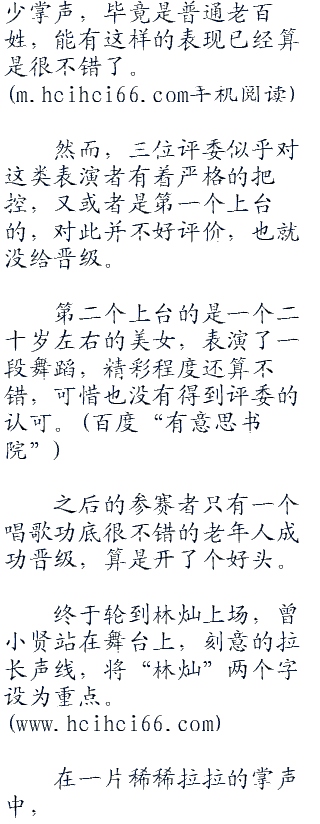 少掌声，毕竟是普通老百
姓，能有这样的表现已经算
是很不错了。
(m.hcihci66.com手机阅读)
然而，三位评委似乎对
这类表演者有着严格的把
控，又或者是第一个上台
的，对此并不好评价，也就
没给晋级。
第二个上台的是一个二
十岁左右的美女，表演了一
段舞蹈，精彩程度还算不
错，可惜也没有得到评委的
认可。(百度“有意思书
院”)
之后的参赛者只有一个
唱歌功底很不错的老年人成
功晋级，算是开了个好头。
终于轮到林灿上场，曾
小贤站在舞台上，刻意的拉
长声线，将“林灿”两个字
设为重点。
(www.hcihci66.com)
在一片稀稀拉拉的掌声
中，